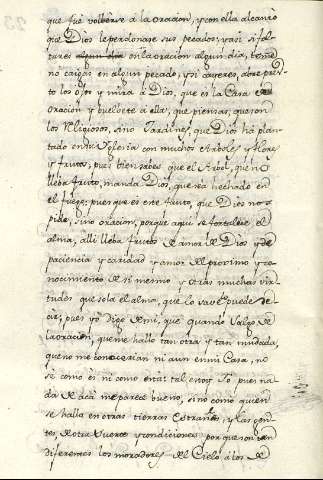 que fue volberse a la oracion, y con ella alcanzo
que Dios le perdonase sus pecados, y asi si fal-
tares en la oracion algun dia, teme
no caigas en algun pecado, y si caieres, abre pres-
to los ojos y mira a Dios, que es la Casa
oracion y buelbete a ella, que piensas que son
los Religiosos, sino Jardines, que Dios ha plan-
tado en su Yglesia con muchos Arboles y flores,
y frutos, pues bien sabes que el Arbol, que no
lleba fruto, manda Dios, que sea hechado en
el fuego; pues que es este fruto, que Dios nos
pide, sino oracion, porque aqui se fortaleze el
alma, alli lleba frutos de amor de Dios y de
paciencia y caridad y amor del proximo y co-
nocimiento de si mesmo y otras muchas vir-
tudes que sola el alma, que lo save puede de-
cir; pues yo digo de mi, que quando salgo de
la oracion, que me hallo tan otra y tan mudada,
que no me conocerian ni aun en mi Casa, no
se como es ni como está: tal enoy Yo pues na-
da de acá me parece bueno, sino como quien
se halla en otras tierras Estrañas, y las gen-
tes de otra suerte y condiciones porque son tan
diferentes los moradores del Cielo á los de